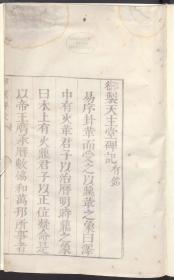 御製天主堂碑記 有銘
易序卦革而受之以鼎革之象曰澤
中有火革君子以治曆明時鼎之象
曰木上有火鼎君子以正位凝命是
以帝王膺承曆數協和萬邦所事者